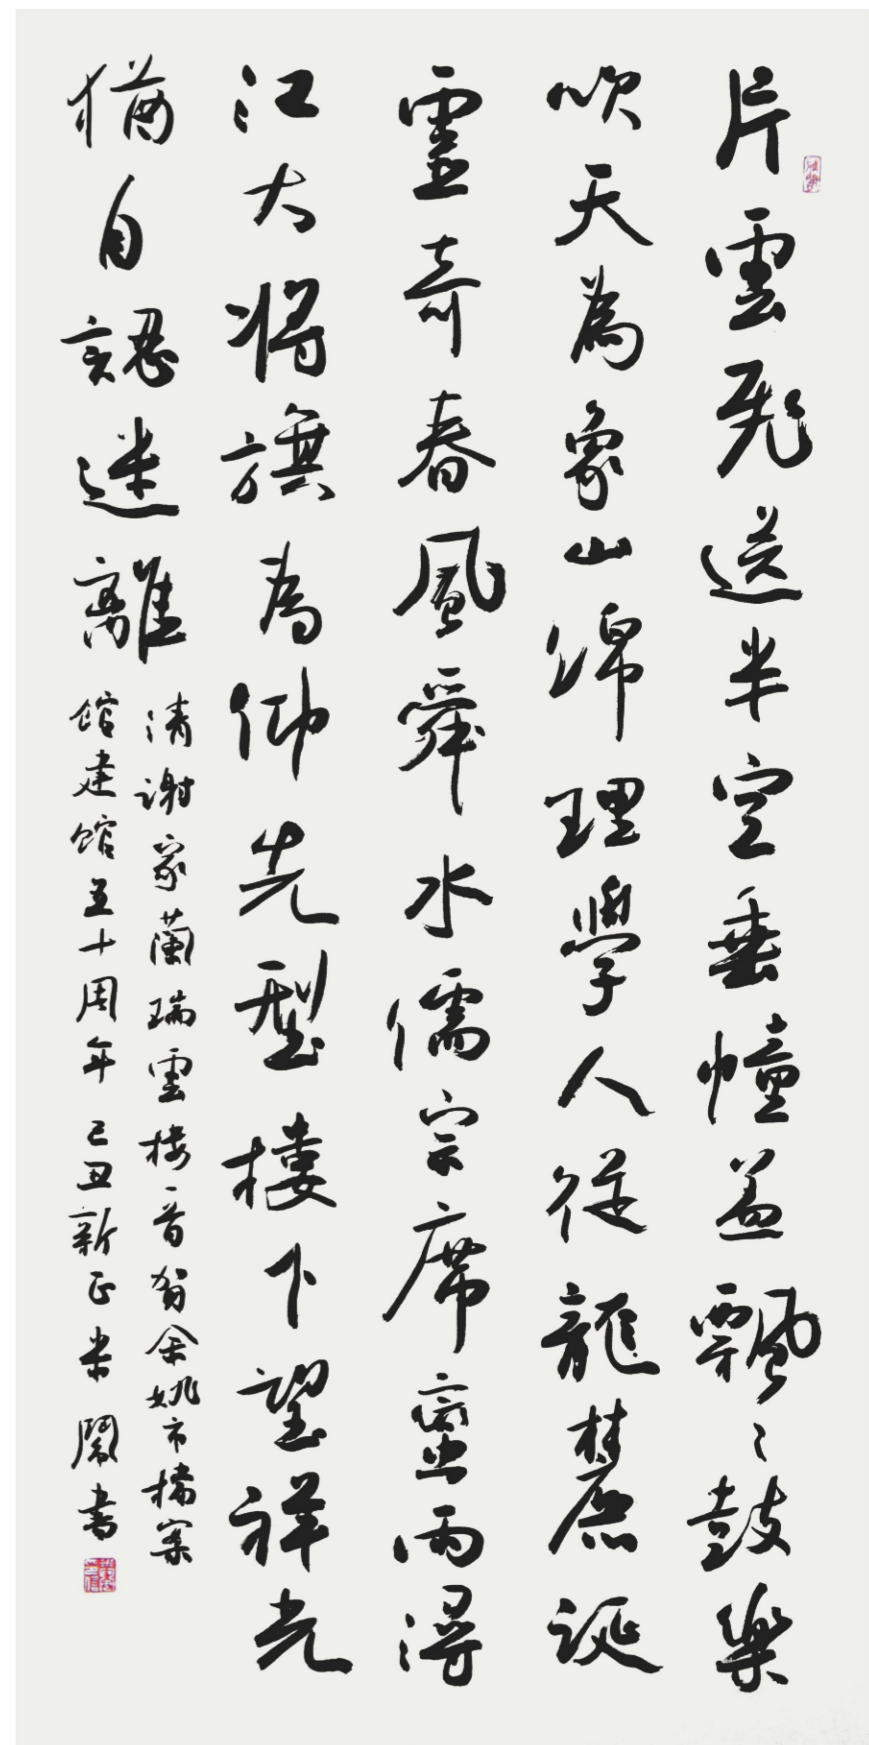 片雲飛送半空垂幢蓋飄〻鼓樂
吹天為象山綿理學人從龍麓誕
靈奇春風舜水儒宗席蠻雨潯
江大將旗為仰先型樓下望祥光
猶自認迷離
清謝家蘭瑞雲樓一首賀余姚市檔案
館建館五十周年 己丑新正米鬧書